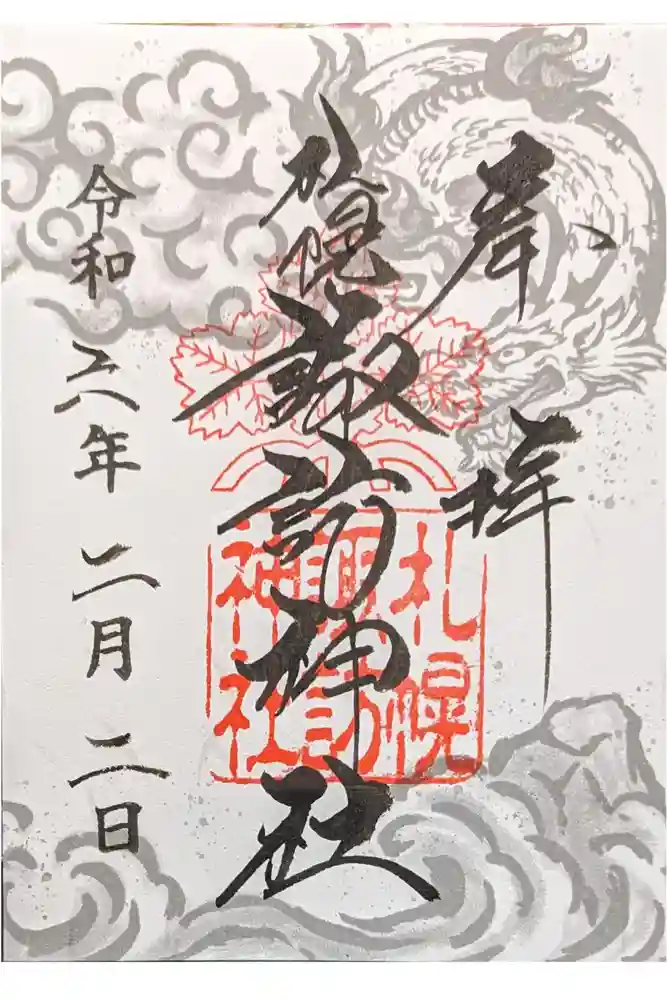 奉拝
札幌諏訪神社
札幌
諏訪
神社
令和六年二月二日